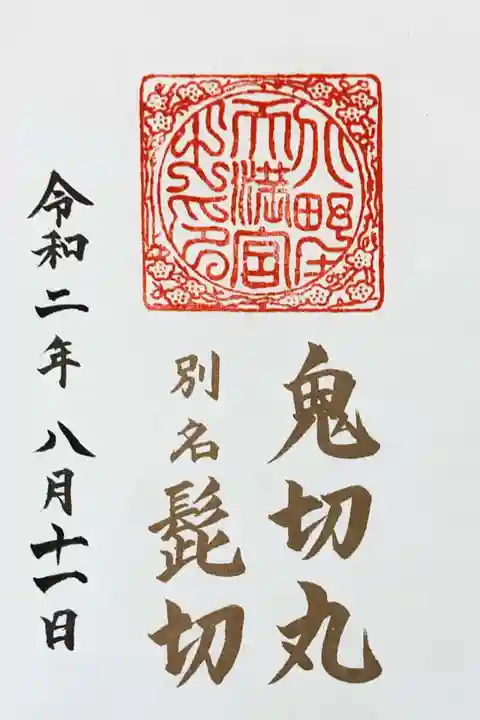 天満宮
鬼切丸
別名 髭切
令和二年 八月十一日